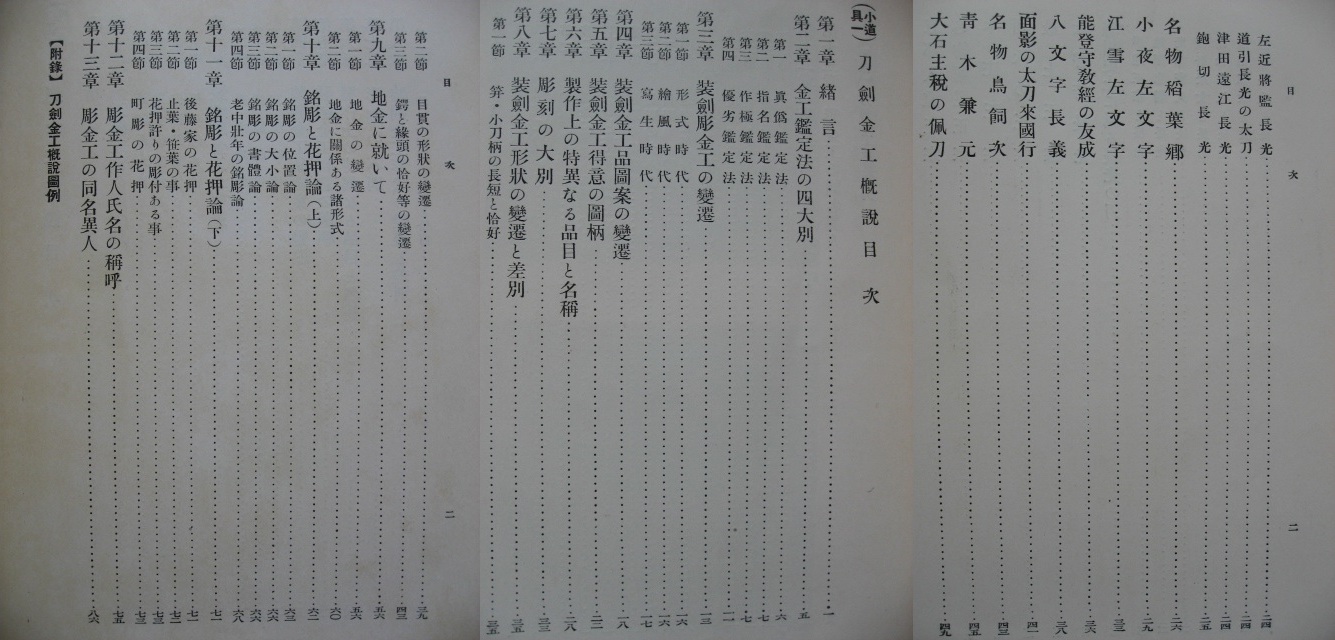 目次
左近將監長光……二四
道引長光の太刀……二四
津田遠江長光……二四
鉋切長光……二五
名物稻葉鄕……二六
小夜左文字……二九
江雪左文字……三三
能登守敎經の友成……三六
八文字長義……三八
面影の太刀來國行……四一
名物鳥飼次……四三
靑木兼元……四五
大石主稅の佩刀……四九
二
(小道具一)刀劍金工槪說目次
第一章 緒言……一
第二章 金工鑑定法の四大別……五
第一 眞僞鑑定法……六
第二 指名鑑定法……七
第三 作極鑑定法……七
第四 優劣鑑定法……一一
第三章 裝劍彫金工の變遷……一三
第一節 形式時代……一六
第二節 繪風時代……一六
第三節 寫生時代……一七
第四章 裝劍金工品圖案の變遷……一八
第五章 裝劍金工得意の圖柄……二二
第六章 製作上の特異なる品目と名稱……二八
第七章 彫刻の大別……三三
第八章 裝劍金工形狀の變遷と差別……三五
第一節 笄・小刀柄の長短と恰好……三五
目次
第二節 目貫の形狀の變遷……三九
第三節 鍔と緣頭の恰好等の變遷……四三
第九章 地金に就いて……五六
第一節 地金の變遷……五六
第二節 地金に關係ある諸形式……六〇
第十章 銘彫と花押論(上)……六二
第一節 銘彫の位置論……六三
第二節 銘彫の大小論……六六
第三節 銘彫の書體論……六六
第四節 老中壯年の銘彫論……六八
第十一章 銘彫と花押論(下)……七一
第一節 後藤家の花押……七一
第二節 止葉・笹葉の事……七二
第三節 花押許りの彫付ある事……七三
第四節 町彫の花押……七三
第十二章 彫金工作人氏名の稱呼……七五
第十三章 彫金工の同名異人……八六
【附錄】刀劍金工槪說圖例
二